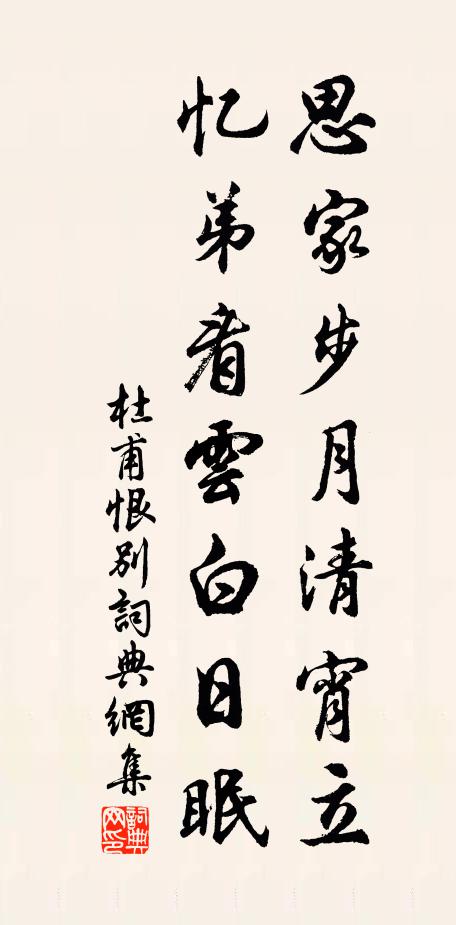 思家步月清宵立
忆弟看雲白日眠
杜甫恨别詞典網集
詞典網印